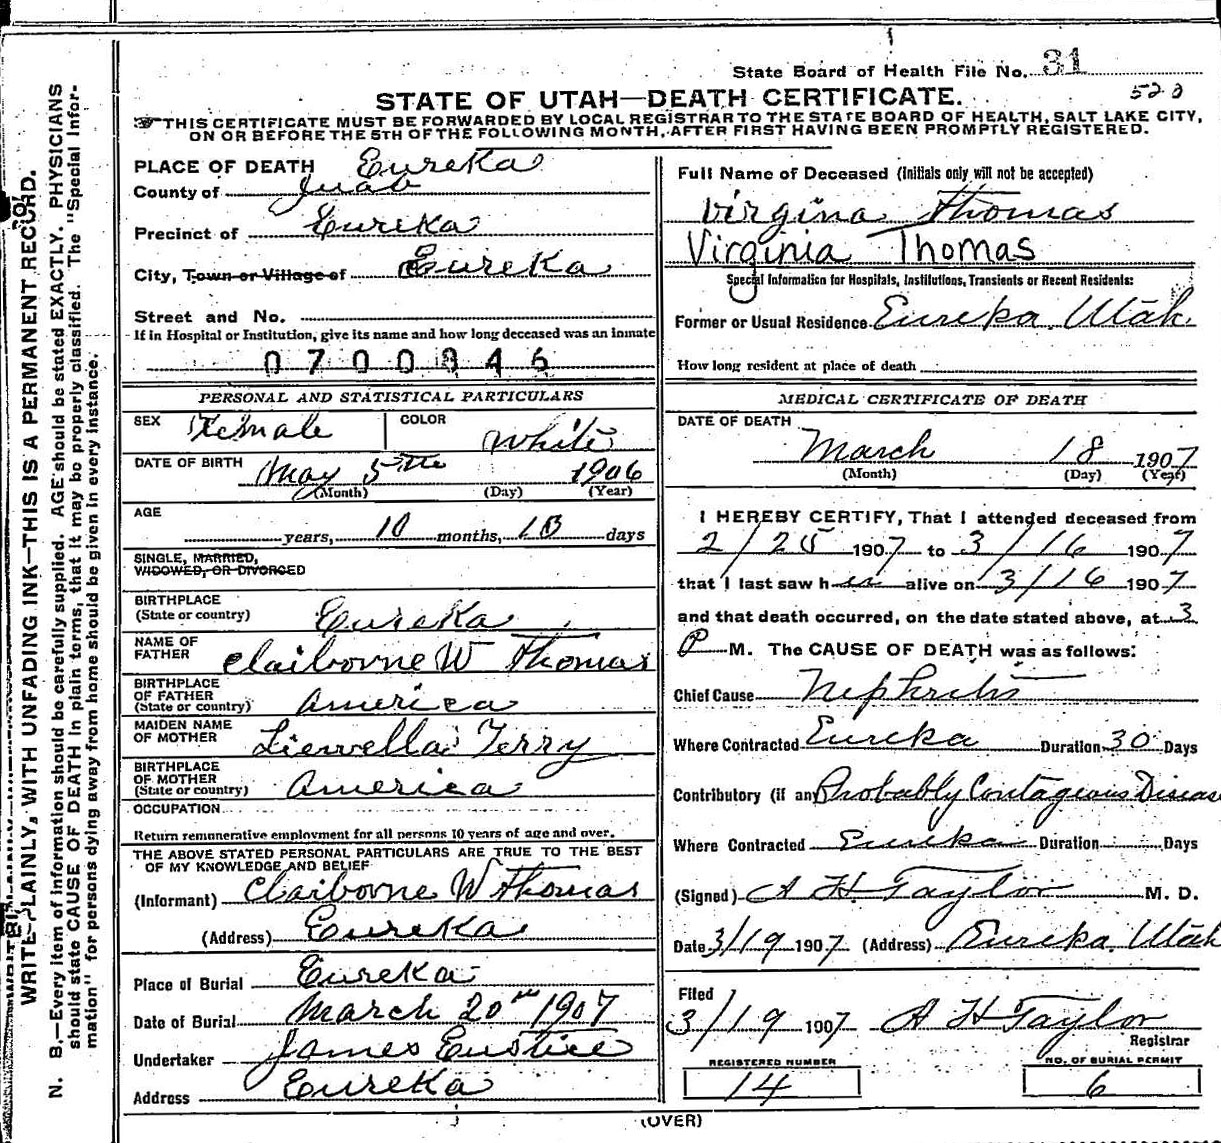 State Board of Health File No. 31
520
STATE OF UTAH—DEATH CERTIFICATE.
THIS CERTIFICATE MUST BE FORWARDED BY LOCAL REGISTRAR TO THE STATE BOARD OF HEALTH, SALT LAKE CITY,
ON OR BEFORE THE 5TH OF THE FOLLOWING MONTH, AFTER FIRST HAVING BEEN PROMPTLY REGISTERED.
PLACE OF DEATH Eureka
County of Juab
Precinct of Eureka
City, Town or Village of Eureka
Street and No.
If in Hospital or Institution, give its name and how long deceased was an inmate
0700846
PERSONAL AND STATISTICAL PARTICULARS
SEX Female COLOR White
DATE OF BIRTH May 5th 1906
(Month) (Day) (Year)
AGE
years, 10 months, 13 days
SINGLE, MARRIED,
WIDOWED, OR DIVORCED
BIRTHPLACE
(State or country) Eureka
NAME OF
FATHER Claiborne W Thomas
BIRTHPLACE
OF FATHER
(State or country) America
MAIDEN NAME
OF MOTHER Liewella Terry
BIRTHPLACE
OF MOTHER
(State or country) America
OCCUPATION
Return remunerative employment for all persons 10 years of age and over.
THE ABOVE STATED PERSONAL PARTICULARS ARE TRUE TO THE BEST
OF MY KNOWLEDGE AND BELIEF
(Informant) Claiborne W Thomas
(Address) Eureka
Place of Burial Eureka
Date of Burial March 20th 1907
Undertaker James Eustice
Address Eureka
Full Name of Deceased (Initials only will not be accepted)
Virgina Thomas
Virginia Thomas
Special Information for Hospitals, Institutions, Transients or Recent Residents:
Former or Usual Residence Eureka Utah
How long resident at place of death
MEDICAL CERTIFICATE OF DEATH
DATE OF DEATH
March 18 1907
(Month) (Day) (Year)
I HEREBY CERTIFY, That I attended deceased from
2/25 1907 to 3/16 1907
that I last saw her alive on 3/16 1907
and that death occurred, on the date stated above, at 3
P M. The CAUSE OF DEATH was as follows:
Chief Cause Nephritis
Where Contracted Eureka Duration 30 Days
Contributory (if any) Probably Contagious Disease
Where Contracted Eureka Duration Days
(Signed) A H Taylor M. D.
Date 3/19 1907 (Address) Eureka, Utah
Filed
3/19 1907 A H Taylor
Registrar
REGISTERED NUMBER
14
NO. OF BURIAL PERMIT
6
(OVER)
WRITE PLAINLY, WITH UNFADING INK—THIS IS A PERMANENT RECORD.
N. B.—Every item of information should be carefully supplied. AGE should be stated EXACTLY. PHYSICIANS
should state CAUSE OF DEATH in plain terms, that it may be properly classified. The "Special Infor-
mation" for persons dying away from home should be given in every instance.